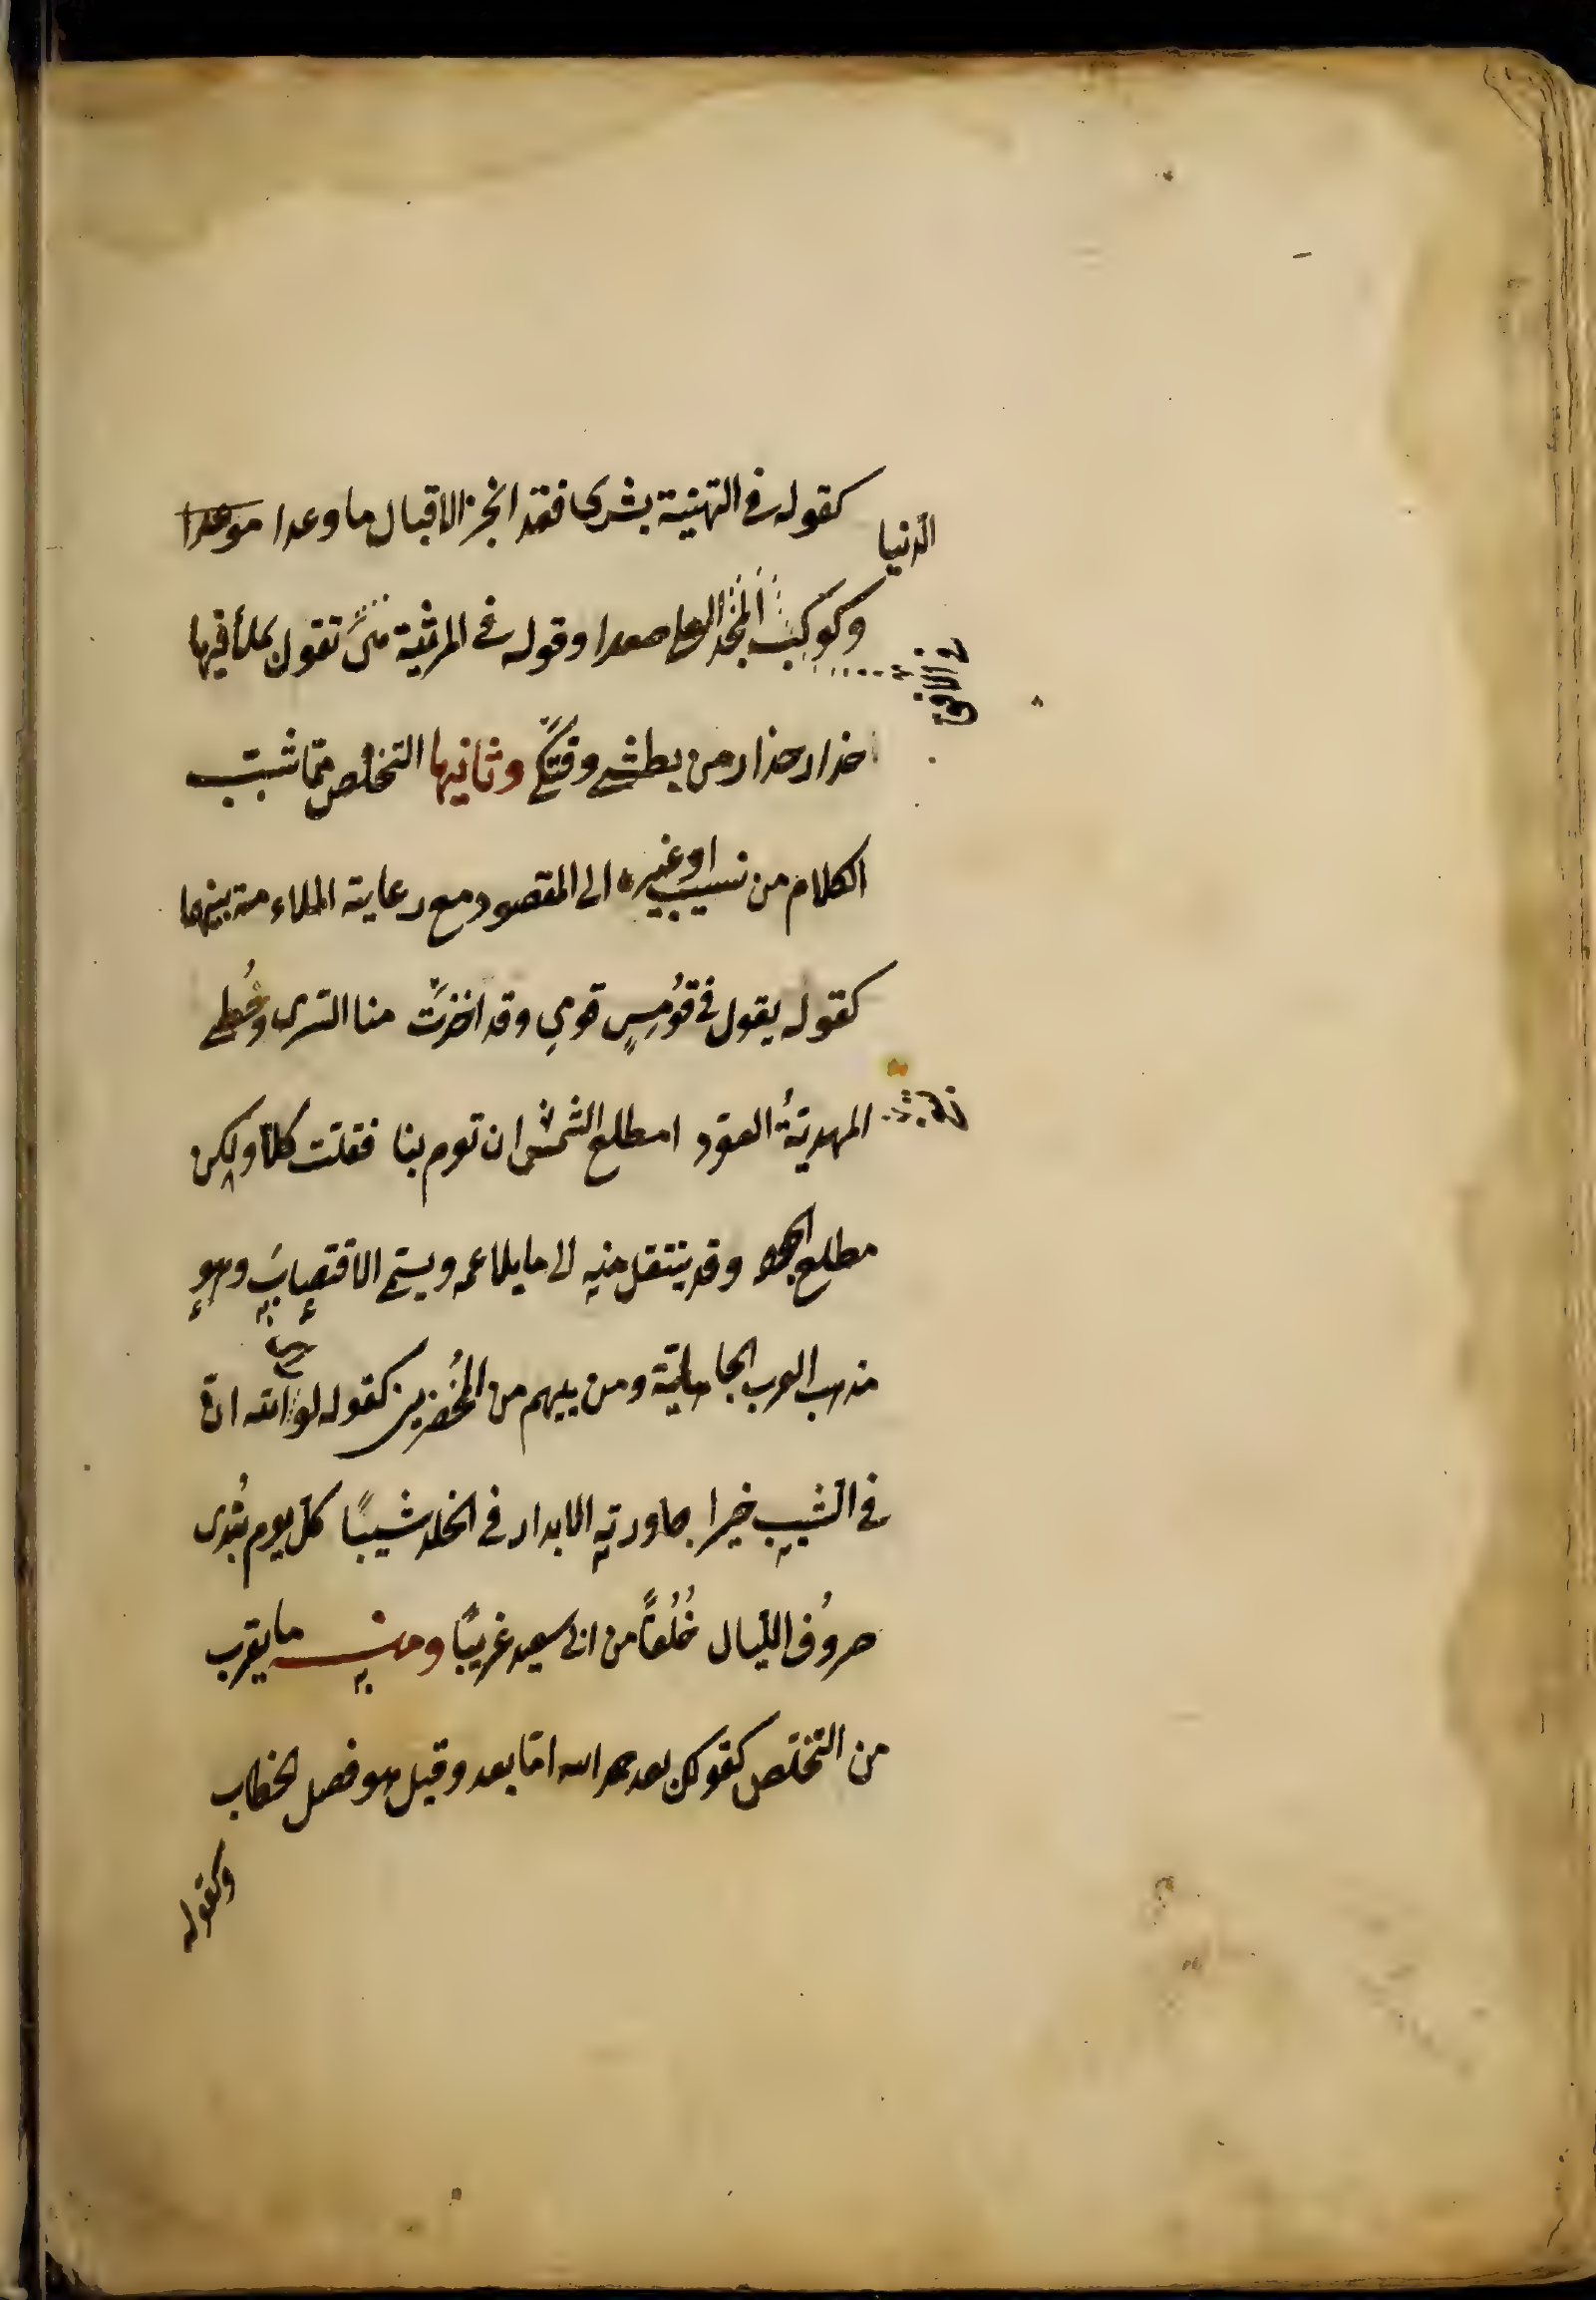 كقوله في التهنية بشرى فقد انجز الاقبال ما وعدا موعدا
الدنيا
وكوكب المجد العلى صعدا وقوله في المرثية هى تقول بملأ فيها
في الافق
حذار حذار من بطشي وفتكي وثانيها التخلص مما شبب
الكلام من نسيب او غيره الى المقصود مع رعاية الملاءمة بينهما
كقوله يقول في قُومِسٍ قومي وقد اخذت منا السرى وخُطى
المهرية القود امطلع الشمس ان توم بنا فقلت كلا ولكن
مطلع الجود وقد ينتقل منه الى ما يلائمه ويسمى الاقتضاب وهو
مذهب العرب الجاهلية ومن يليهم من المُخضرمين كقوله لو الله ان
في الشيب خيرا جاورته الابرار في الخلد شيبًا كل يوم تُبدى
صروُف الليالى خُلُقاً من ابى سعيد غريبًا ومنه ما يقرب
من التخلص كقولك بعد حمد الله امّا بعد وقيل هو فصل الخطاب
وكقوله